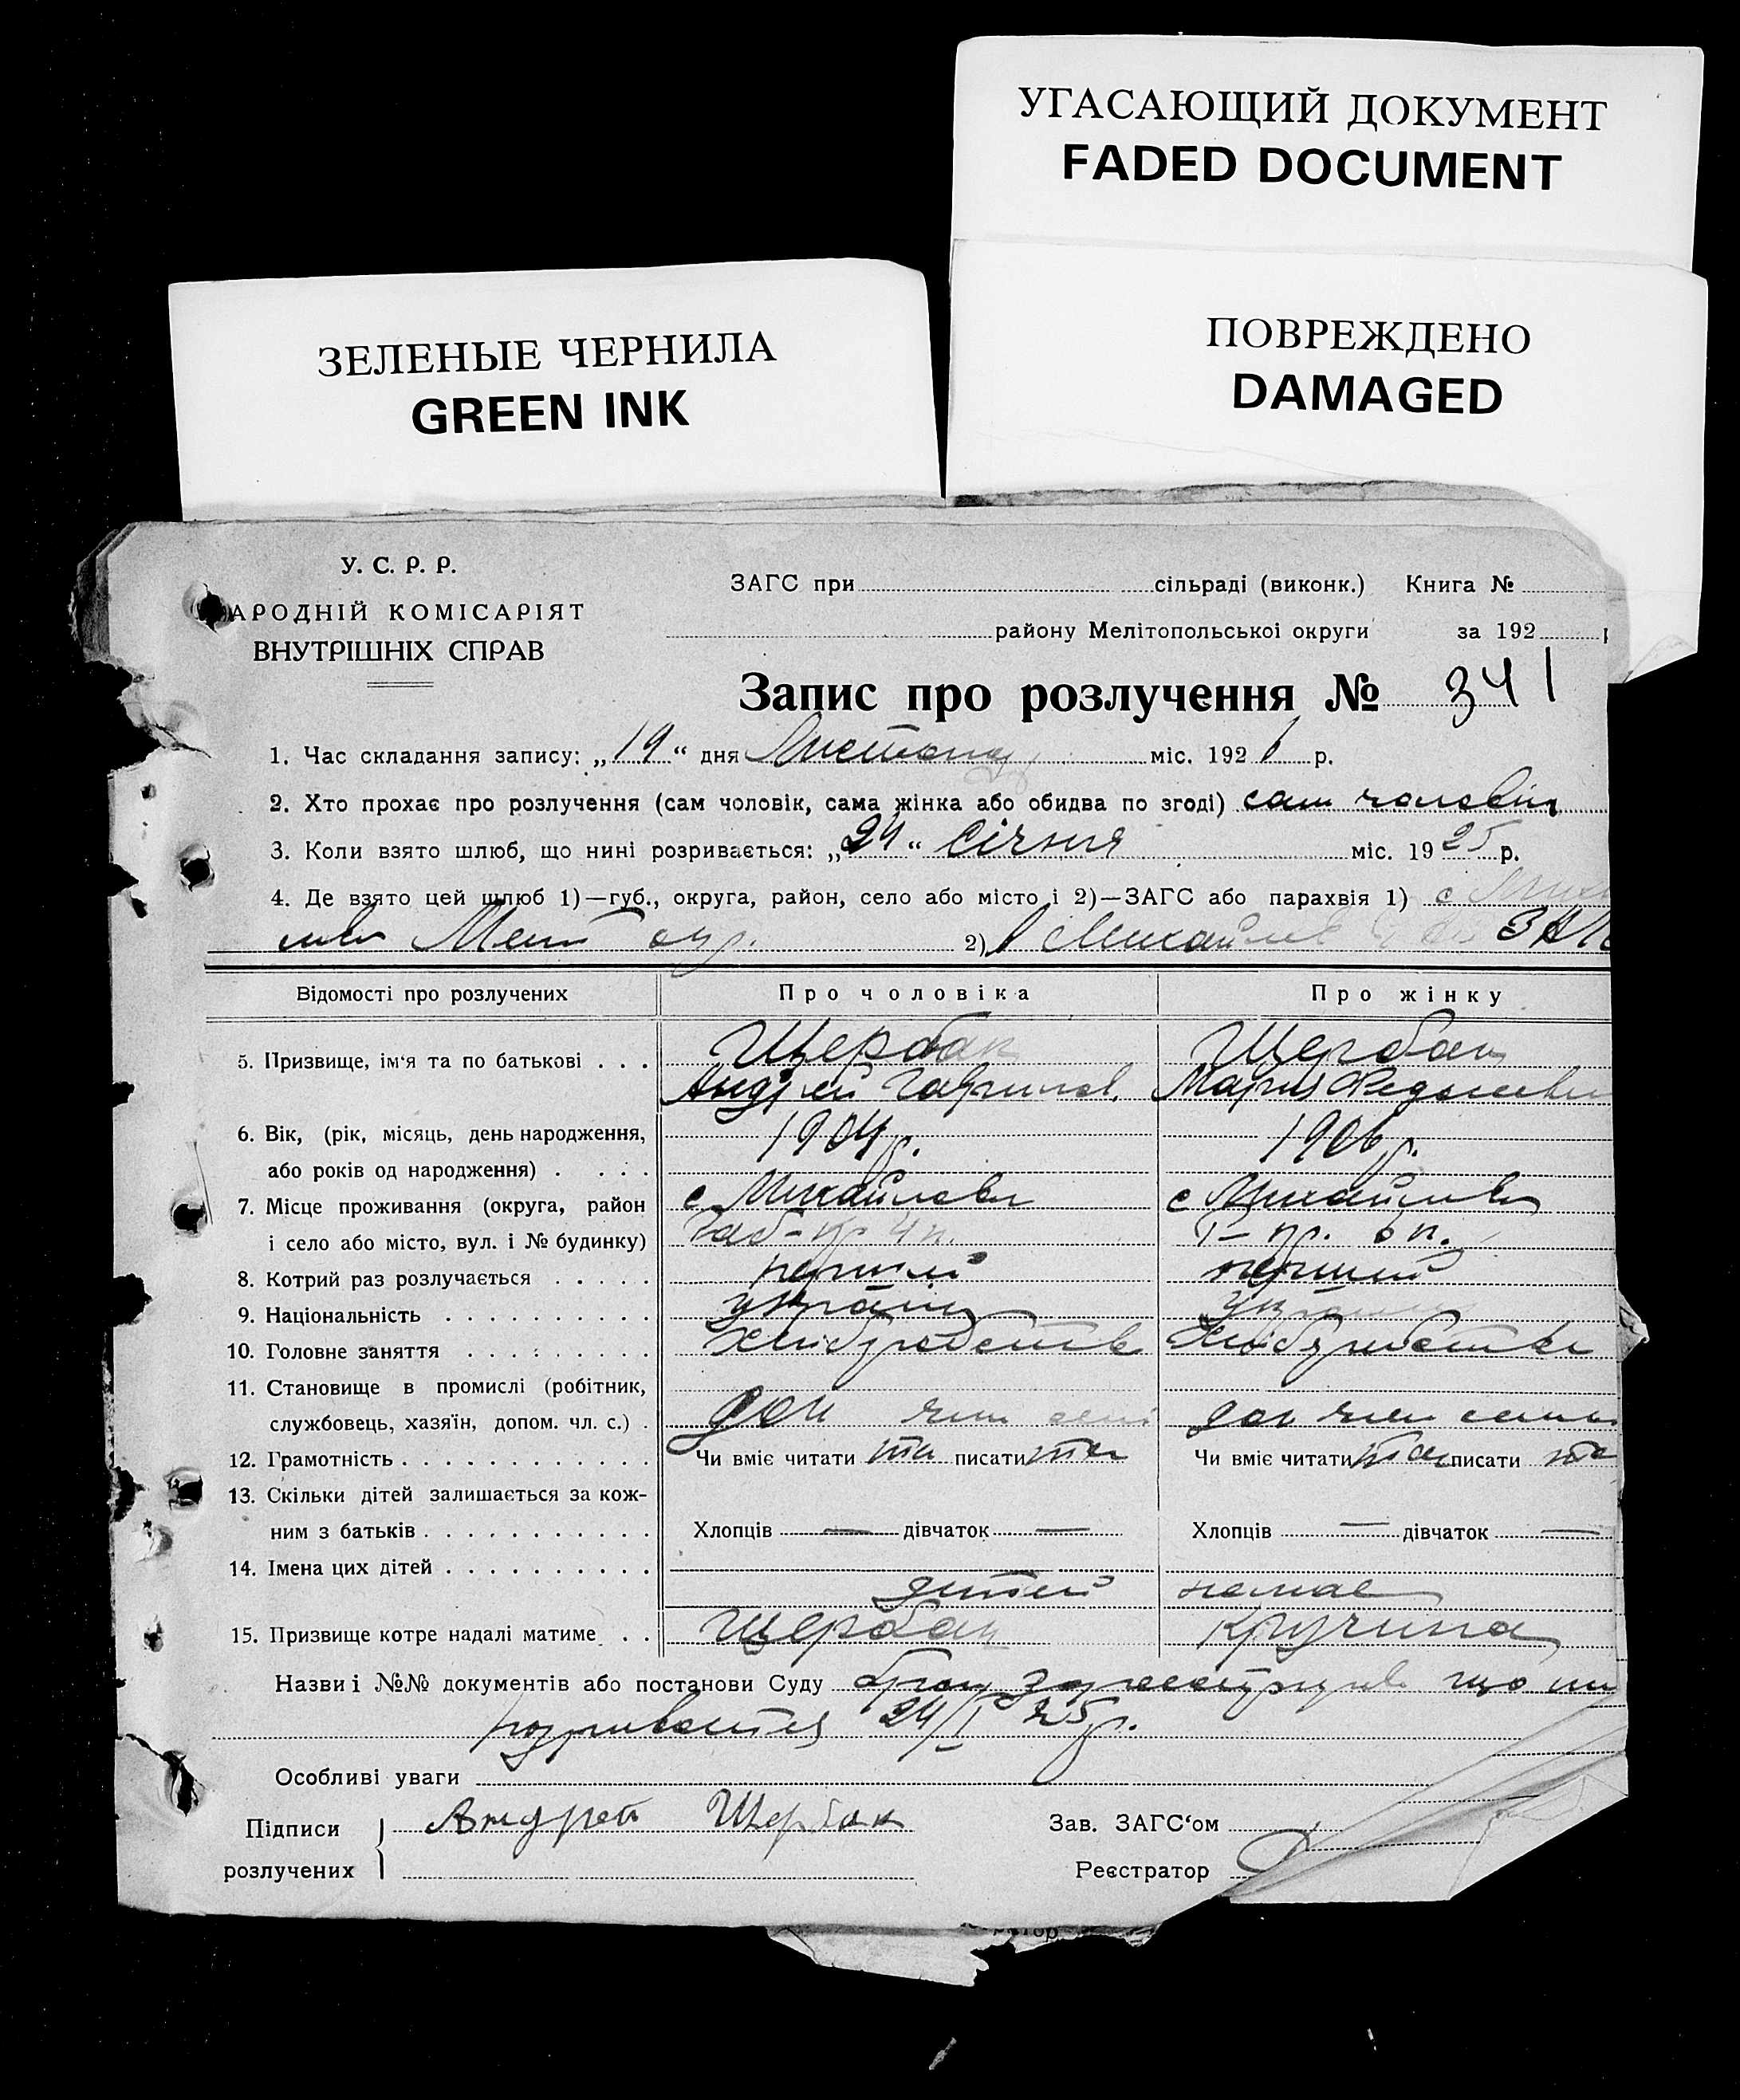 УГАСАЮЩИЙ ДОКУМЕНТ
FADED DOCUMENT
ЗЕЛЕНЫЕ ЧЕРНИЛА
GREEN INK
ПОВРЕЖДЕНО
DAMAGED
У. С. Р. Р.
АРОДНІЙ КОМІСАРІЯТ
ВНУТРІШНІХ СПРАВ
ЗАГС при сільраді (виконк.) Книга №
району Мелітопольської округи за 192
Запис про розлучення № 341
1. Час складання запису: „19“ дня Листопад міс. 1926 р.
2. Хто прохає про розлучення (сам чоловік, сама жінка або обидва по згоді) сам чоловік
3. Коли взято шлюб, що нині розривається: „24“ Січня міс. 1925 р.
4. Де взято цей шлюб 1)—губ., округа, район, село або місто і 2)—ЗАГС або парахвія 1) с
Мел окр. 2)
Відомості про розлучених Про чоловіка Про жінку
5. Призвище, ім‘я та по батькові . . . Щербак Щербак
Андрій Гаврилов. Мария
6. Вік, (рік, місяць, день народження, 1904 р. 1906 р.
або років од народження) . . . .
7. Місце проживання (округа, район с Михайлівка с Михайлівка
і село або місто, вул. і № будинку) 4 п. 6 п.
8. Котрий раз розлучається . . . . . перший перший
9. Національність . . . . . . . . . . україн україн
10. Головне заняття . . . . . . . . . хліборобство хліборобство
11. Становище в промислі (робітник,
службовець, хазяїн, допом. чл. с.) . доп член сем доп член сем
12. Грамотність . . . . . . . . . . . . Чи вміє читати так писати так Чи вміє читати так писати та
13. Скільки дітей залишається за кож-
ним з батьків . . . . . . . . . . . Хлопців — дівчаток — Хлопців — дівчаток —
14. Імена цих дітей . . . . . . . . . .
дітей немає
15. Призвище котре надалі матиме . . Щербак Кручина
Назви і №№ документів або постанови Суду брак що
розривається 24/I 25 р.
Особливі уваги
Підписи Андрей Щербак Зав. ЗАГС‘ом
розлучених Реєстратор